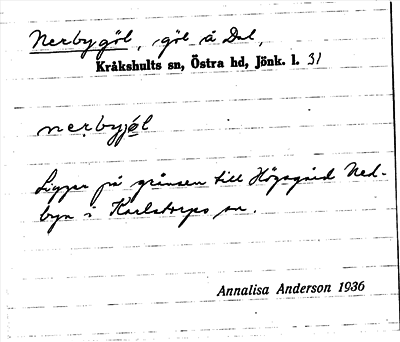 Nerbygöl, göl å Dal,
Kråkshults sn, Östra hd, Jönk. l. 31
nerbyjö̲l
Ligger på gränsen till Högagärd Ned-
byn i Karlstorps sn.
Annalisa Anderson 1936